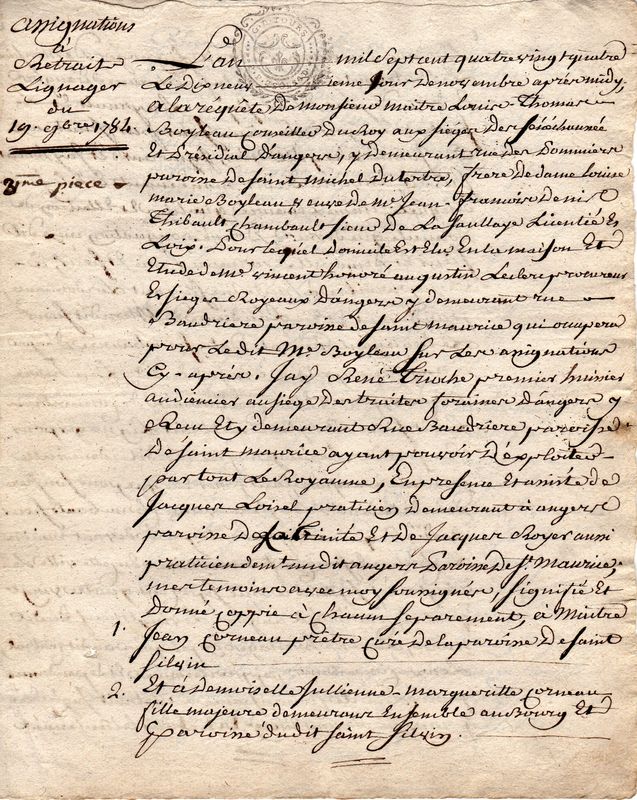 assignations
à
Retrait
Lignager
du
19. 9bre 1784.
3ème piece
G. DE TOURS
L'an mil Sept cent quatre vingt quatre
Le Dixneuf ieme Jour de novembre après midy,
a la requête De monsieur maitre Louis-Thomas
Boyleau conseiller Du Roy aux sièges des sénéchaussée
Et Présidial D'angers, y Demeurant rue Des Pommiers
paroisse De Saint Michel Du tertre, frere De dame Louise
marie Boyleau veuve De Me Jean-françois Denis
Thibault Chambault sieur De La Jaullaye Licentié Es
Loix. Pour lequel Domicile Est Elu En la maison Et
Etude de Me vincent honoré augustin Leclerc procureur
Es sieges Royeaux D'angers y demeurant rue
Baudriere paroisse de Saint maurice qui occupera
pour Le dit Me Boyleau Sur Les assignations
Cy-après. Jay René Trioche premier huissier
audiencier au siège Des traites foraines D'angers y
Reçu Et y demeurant Rue Baudriere paroisse
De Saint maurice ayant pouvoir D'exploiter
par tout Le Royaume, En presence Et assisté de
Jacques Loisel praticien Demeurant à angers
paroisse De La trinité Et De Jacques Royer aussi
praticien demt audit angers Paroisse De St Maurice,
mes temoins avec moy soussignés, Signifié Et
Donné coppie à Chacun Separement, a Maitre
1. Jean Corneau prêtre curé De la paroisse De Saint
Silvin
2. Et à Demoiselle Jullienne-margueritte Corneau
fille majeure demeurans Ensemble au Bourg Et
Paroisse dudit Saint Silvin.